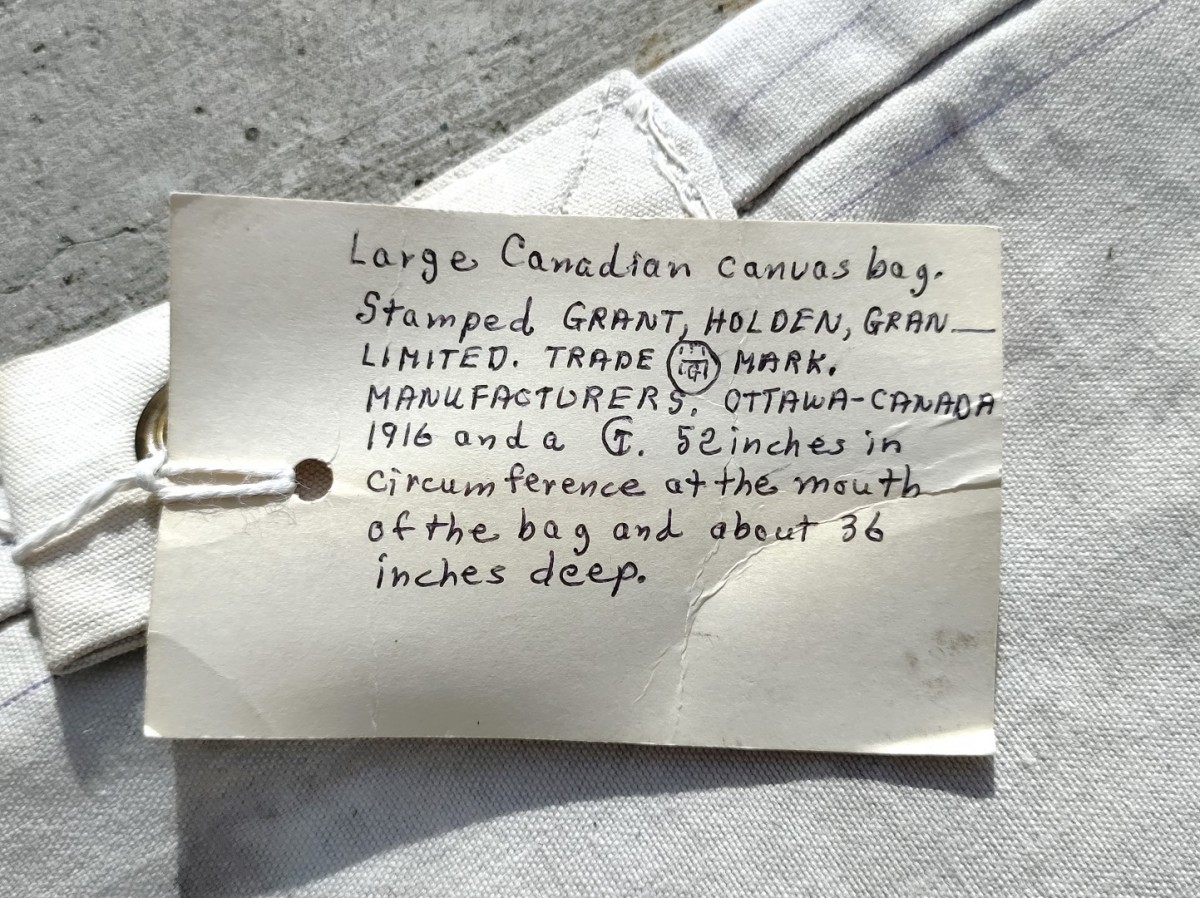 Large Canadian canvas bag.
Stamped GRANT, HOLDEN, GRAN—
LIMITED. TRADE MARK.
MANUFACTURERS, OTTAWA-CANADA
1916 and a G. 52 inches in
circumference at the mouth
of the bag and about 36
inches deep.